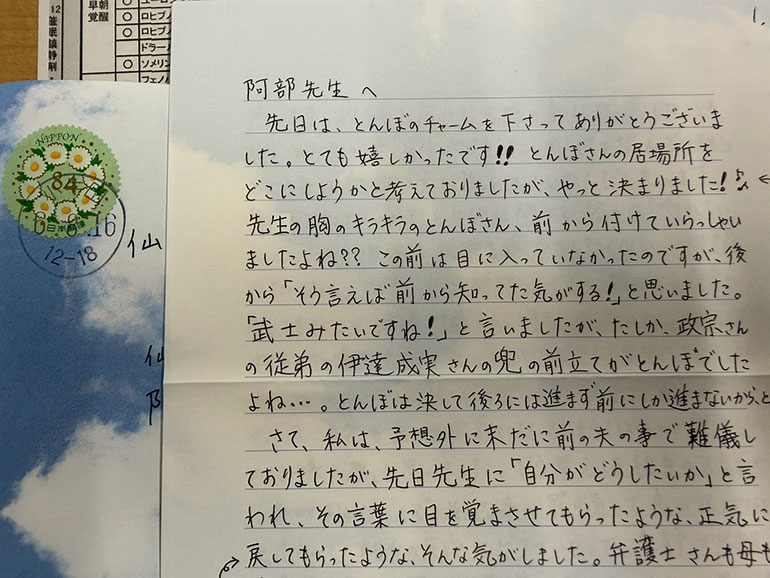 12
催眠鎮静剤
早朝
覚醒
ロヒプノ
ロヒプノ
ドラー
ソメリン
フェノ
1.
NIPPON
84
日本郵便
16
12-18
仙
阿部先生へ
先日は、とんぼのチャームを下さってありがとうございま
した。とても嬉しかったです!! とんぼさんの居場所を
どこにしようかと考えておりましたが、やっと決まりました!♪
先生の胸のキラキラのとんぼさん、前から付けていらっしゃい
ましたよね?? この前は目に入っていなかったのですが、後
から「そう言えば前から知ってた気がする!」と思いました。
「武士みたいですね!」と言いましたが、たしか、政宗さん
の従弟の伊達成実さんの兜の前立てがとんぼでした
よね…。とんぼは決して後ろには進まず前にしか進まないから、と
さて、私は、予想外に未だに前の夫の事で難儀し
ておりましたが、先日先生に「自分がどうしたいか」と言
われ、その言葉に目を覚まさせてもらったような、正気に
戻してもらったような、そんな気がしました。弁護士さんも母も